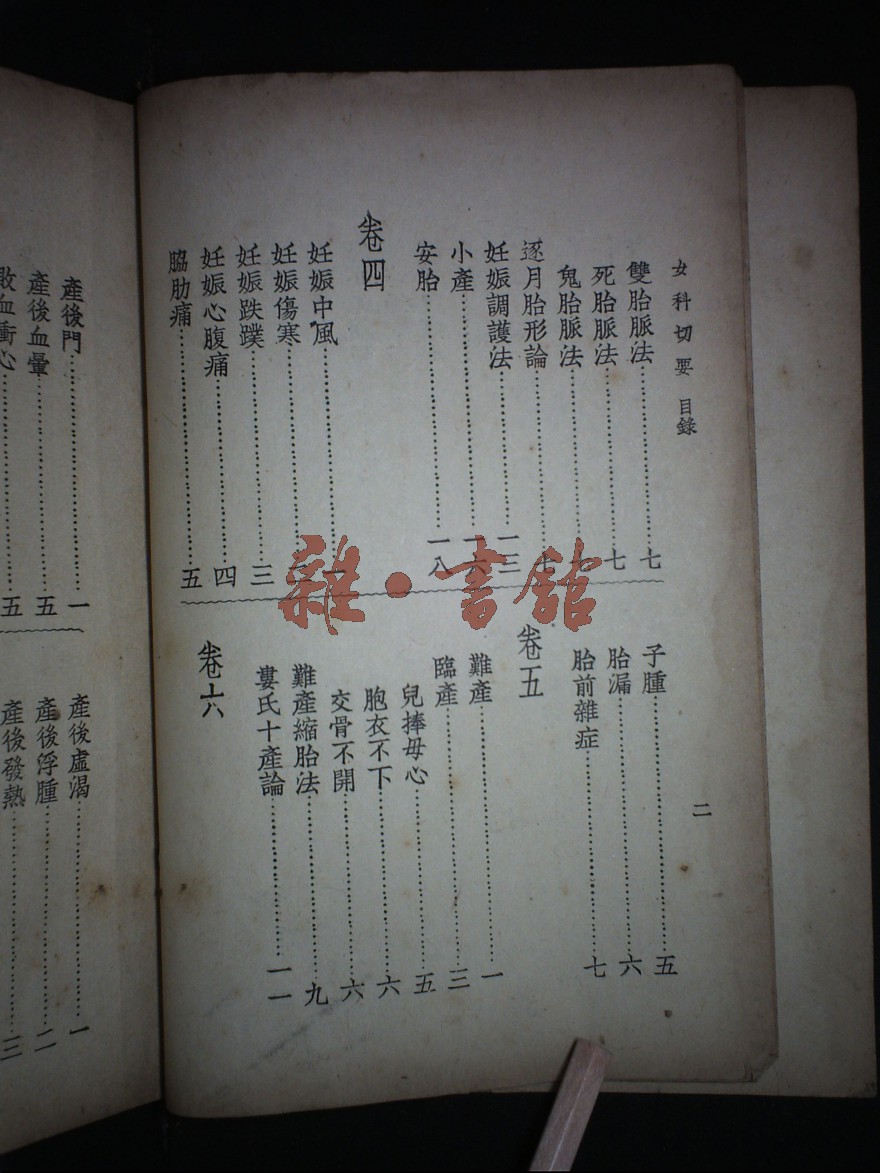 女科切要 目錄
二
雙胎脈法……七
死胎脈法……七
鬼胎脈法……七
逐月胎形論……七
妊娠調護法……一三
小產……一六
安胎……一八
卷四
妊娠中風……一
妊娠傷寒……
妊娠跌蹼……三
妊娠心腹痛……四
脇肋痛……五
子腫……五
胎漏……六
胎前雜症……七
卷五
難產……一
臨產……三
兒捧母心……五
胞衣不下……六
交骨不開……六
難產縮胎法……九
婁氏十產論……一一
卷六
產後門……一
產後血暈……五
敗血衝心……五
產後虛渴……一
產後浮腫……二
產後發熱……三
雜·書館